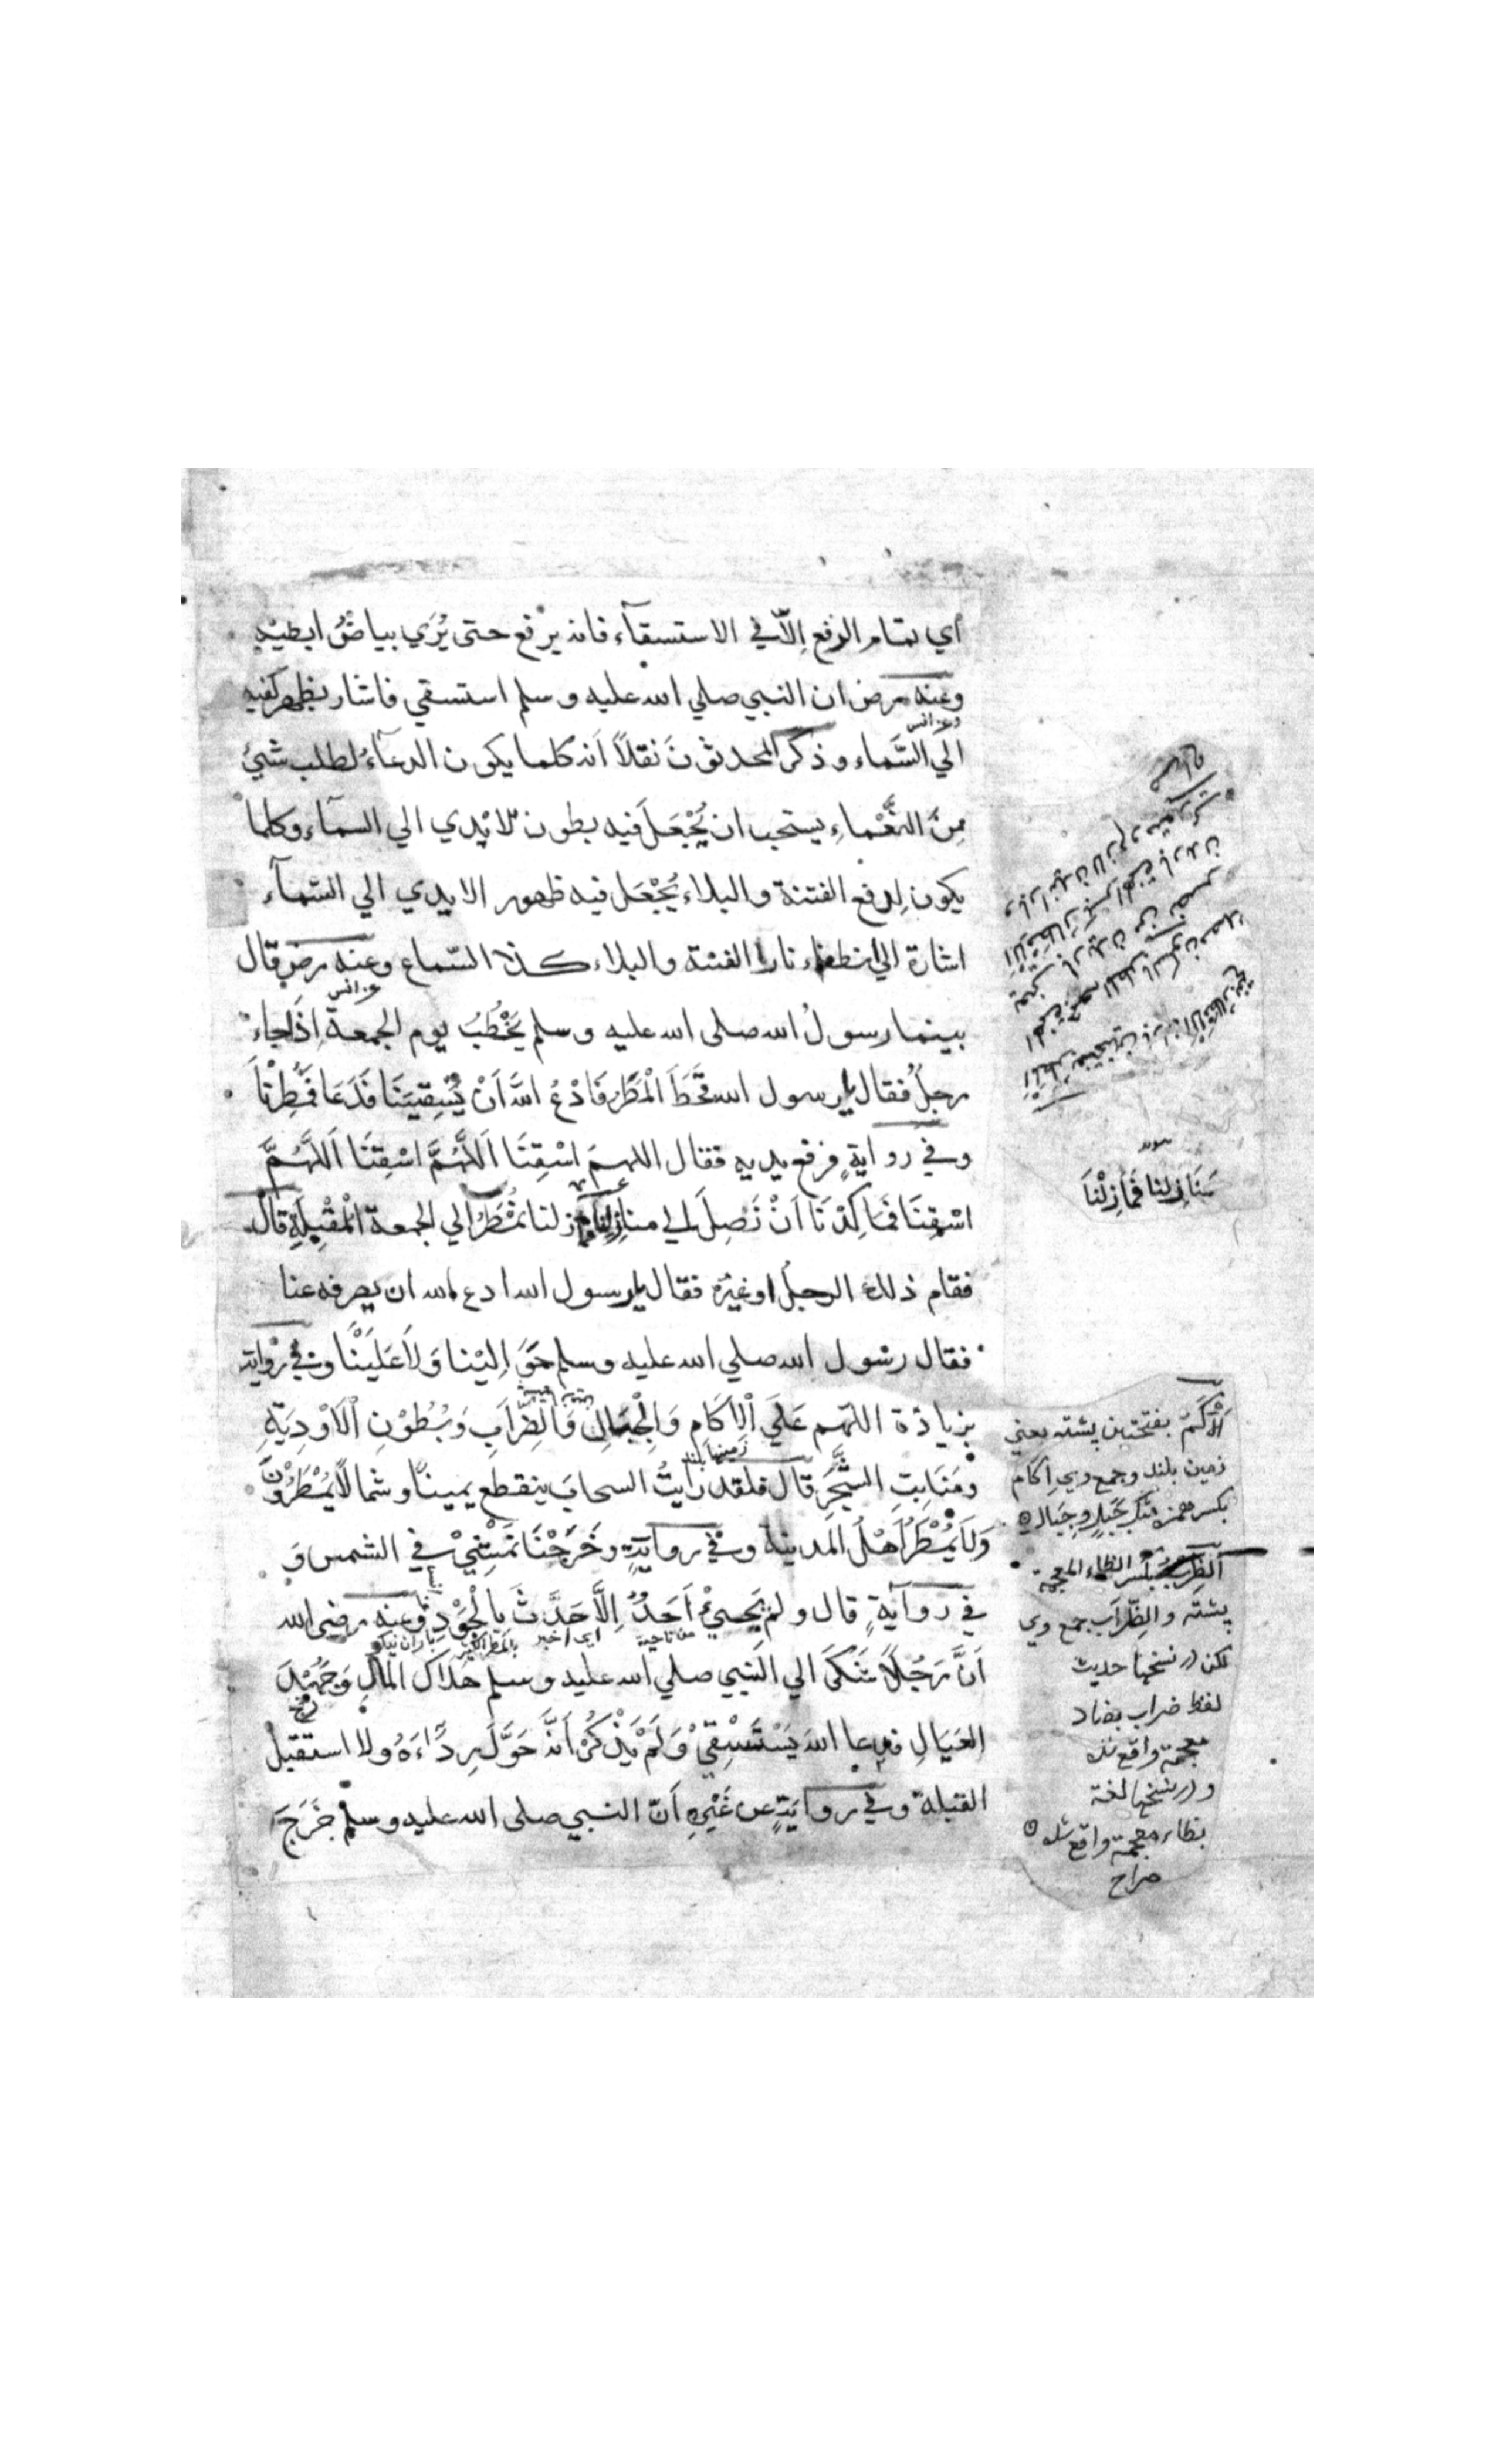 أي تمام الرفع إلّا في الاستسقآء فانه يرفع حتى يُرَي بياضُ ابطيْهِ
وعنه رض ان النبي صلي الله عليه وسلم استسقي فاشار بظهر كفيه
وعن انس
الي السَّماء وذكر المحدثون نَقلاً اَنه كلما يكون الدعآءُ لطلب شيئ
مِنَ النَّعْماءِ يستحب ان يُجْعَلَ فيه بطون الايدي الي السمآء وكلما
يكون لِدفع الفتنة والبلاء يُجْعَل فيه ظهور الايدي الي السّمآء
اشارة الي انطفاء نار الفتنة والبلاء كذا السّماع وعنه رض قال
عن انس
بينما رسولُ الله صلى الله عليه وسلم يَخْطُبُ يوم الجمعة اِذَا جاء
رجلٌ فقال يا رسول الله قَحَطَ الْمَطَرُ فَادْعُ اللهَ اَنْ يَّسْقِيَنَا فَدَعَا فَمُطِرْنَا
وفي روايةٍ فرفع يديه فقال اللهم اسْقِنَا اَللّٰهُمَّ اسْقِنَا اَللّٰهُمَّ
اسْقِنَا فَمَا كِدْنَا اَنْ نَصِلَ الي منازلنا فما زلنا نُمْطَرُ الي الجمعة الْمُقْبِلَةِ قال
فقام ذلك الرجلُ او غيره فقال يا رسول الله ادع الله ان يصرفه عنا
فقال رسول الله صلي الله عليه وسلم حَوَالَيْنا وَلاَ عَلَيْنَا وفي رواية
بزيادة اللهم عَلَي الْاٰكَامِ وَالْجِبَالِ وَالظِّرَابِ وَبُطُوْنِ الْاَوْدِيَةِ
زمينها بلند
ومَنَابِتِ الشَّجَرِ قال فلقد رأيتُ السحابَ ينقطع يمينًا وشمالًا يُمْطَرُوْنَ
وَلَا يُمْطَرُ اَهْلُ المدينة وفي روايةٍ وخَرَجْنَا نَمْشِيْ في الشمس وَ
في روايةٍ قال ولم يَجِيْءْ اَحَدٌ اِلَّا حَدَّثَ بِالْجَوْدِ وعنه رضي الله
من ناحية اي اخبر بالمطر الكثير باران نيكو
اَنَّ رَجُلًا شَكَي الي النبي صلي الله عليه وسلم هَلاَكَ المَالِ وَجَهْدَ
العَيَالِ فدعا اللهَ يَسْتَسْقِيْ وَلَمْ يَذْكُرْ اَنَّهُ حَوَّلَ رِدَاءَهُ ولا استقبل
القبلة وفي روايةٍ عن غَيْرِهِ اَنّ النبي صلى الله عليه وسلم خَرَجَ
مَنَازِلنا فَمَازِلْنَا
اَلْاَكَمُ بفتحتين پشته يعني
زمين بلند وجمع وي اِكام
بكسر همزه مثل جَبَل وجِبَال
الظرب بكسر الظاء المعجمة
پشته والظِّرَاب جمع وي
لكن در نسخها حديث
لفظ ضراب بضاد
معجمة واقع شده
و در نسخها لغة
بظاء معجمة واقع شده
صراح